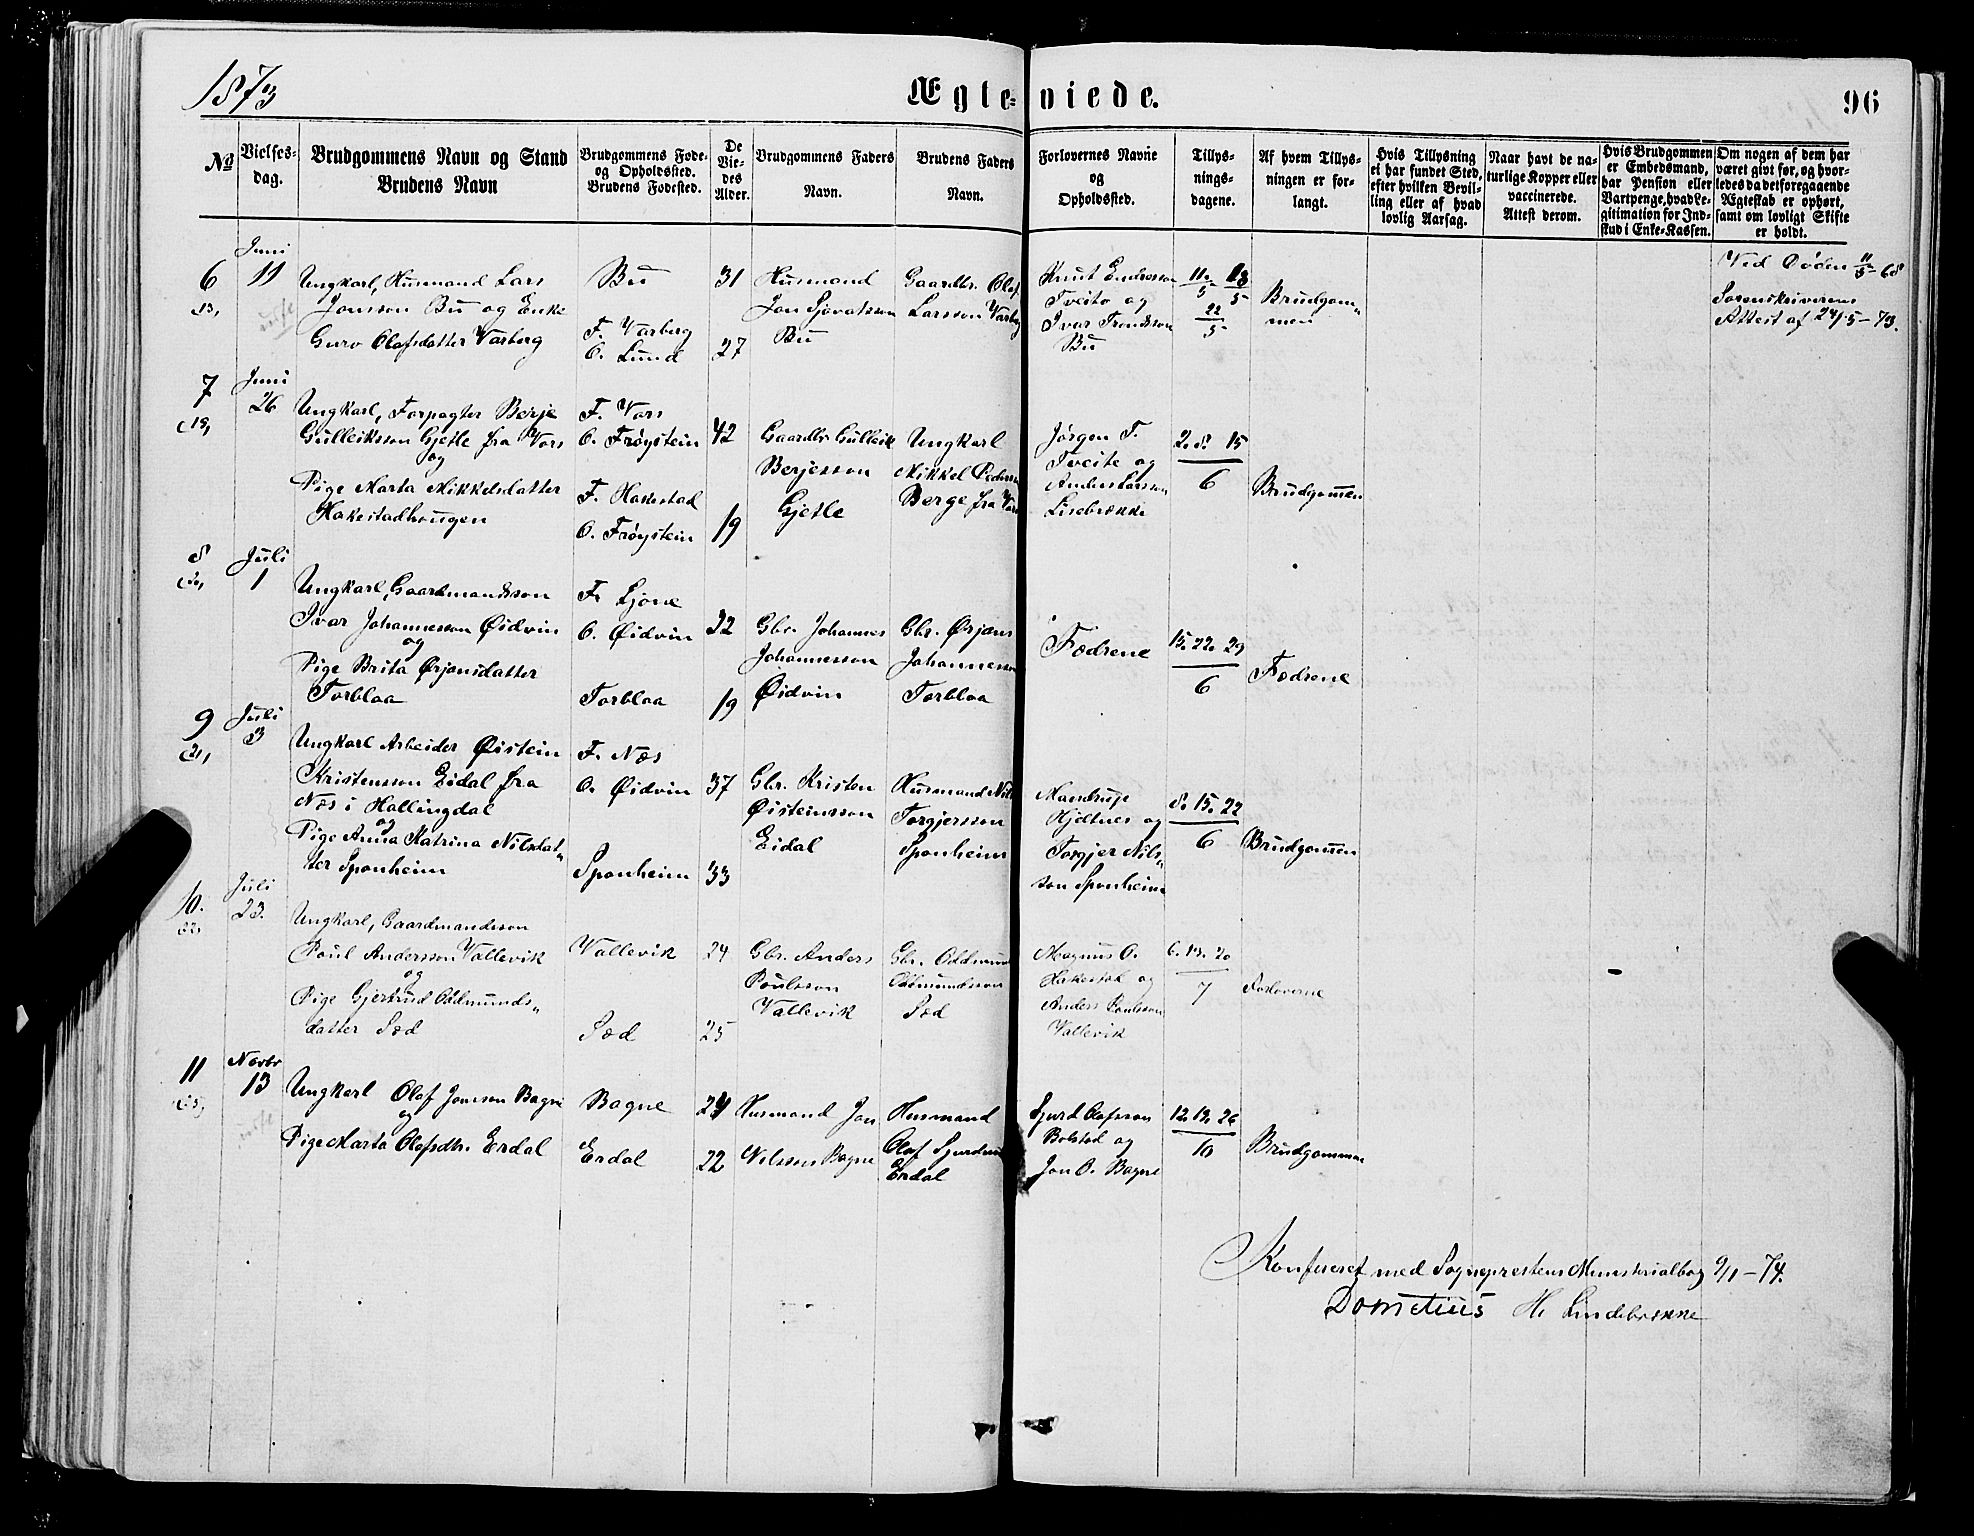 1873
Ægte-viede.
96
No
Vielses-dag.
Brudgommens Navn og Stand
Brudens Navn
Brudgommens Føde- og Opholdssted.
Brudens Fødested.
De Vie-des Alder.
Brudgommens Faders Navn.
Brudens Faders Navn.
Forlovernes Navne og Opholdssted.
Tillys-nings-dagene.
Af hvem Tillys-ningen er for-langt.
Hvis Tillysning ei har fundet Sted, efter hvilken Bevil-ling eller af hvad lovlig Aarsag.
Naar havt de na-turlige Kopper eller vaccinerede. Attest derom.
Hvis Brudgommen er Embedsmand, har Pension eller Vartpenge, hvad Le-gitimation for Ind-skud i Enke-Kassen.
Om nogen af dem har været givt før, og hvor-ledes da det foregaaende Ægteskab er ophørt, samt om lovligt Skifte er holdt.
6
Juni
11
Ungkarl, Husmand Lars
Jonsson Bu og Enke
Guro Olafsdatter Varberg
Bu
F. Varberg
O. Lund
31
27
Husmand
Jon Sjovatsson
Bu
Gaardbr. Olaf
Larsson Varberg
Knut Endresson
Tveito og
Ivar Trondsson
Bu
11/5 18/5
22/5
Brudgom„
men
Ved Døden 11/5-68
Sorenskriverens
Attest af 24/5-73.
7
(19,
Juni
26
Ungkarl, Forpagter Berje
Gulleiksson Gjetle fra Vors
og
Pige Marta Mikkelsdatter
Hakestadhougen
F. Vors
O. Frøystein
F. Hakestad
O. Frøystein
42
19
Gaardbr Gulleik
Berjesson
Gjetle
Ungkarl
Mikkel Pedersson
Berge fra Vors
Jørgen T.
Tveite og
Anders Larsson
2. 8. 15
6
Brudgommen
8
Juli
1
Ungkarl, Gaardmandsson
Ivar Johannesson Øidvin
og
Pige Brita Ørjansdatter
Torbloa
F. Ljone
O. Øidvin
Torbloa
32
19
Gbr. Johannes
Johannesson
Øidvin
Gbr. Ørjans
Johannesson
Torbloa
Fædrene
15. 22. 29
6
Fædrene
9
(21,
Juli
3
Ungkarl Arbeider Øistein
Kristensson Eidal fra
Næs i Hallingdal
og
Pige Anna Katrina Nilsdat„
ter Sponheim
F. Næs
O. Øidvin
Sponheim
37
33
Gbr. Kristen
Øisteinsson
Eidal
Husmand Nils
Torgjersson
Sponheim
Mandrup
Hjeltnes og
Torgjer Nils„
son Sponheim
8. 15. 22
6
Brudgommen
10.
Juli
23.
Ungkarl, Gaardmandsson
Poul Andersson Vallevik
og
Pige Gjertrud Oddmunds„
datter Sæd
Vallevik
Sæd
24
25
Gbr. Anders
Poulsson
Vallevik
Gbr. Oddmund
Oddmundsson
Sæd
Magnus O.
Hakestad og
Anders Poulsson
Vallevik
6. 13. 20
7
Forloverne
11
Novbr
13
Ungkarl Olaf Jonsson Bagne
og
Pige Marta Olafsdtr. Erdal
Bagne
Erdal
24
22
Husmand Jon
Nilsson Bagne
Husmand
Olaf Sjurdsson
Erdal
Sjurd Olafsson
Bolstad og
Jon O. Bagne
12. 13. 26
10
Brudgommen
Konfereret med Sogneprestens Ministerialbog 9/1-74.
Dometius H. Lindebrekke